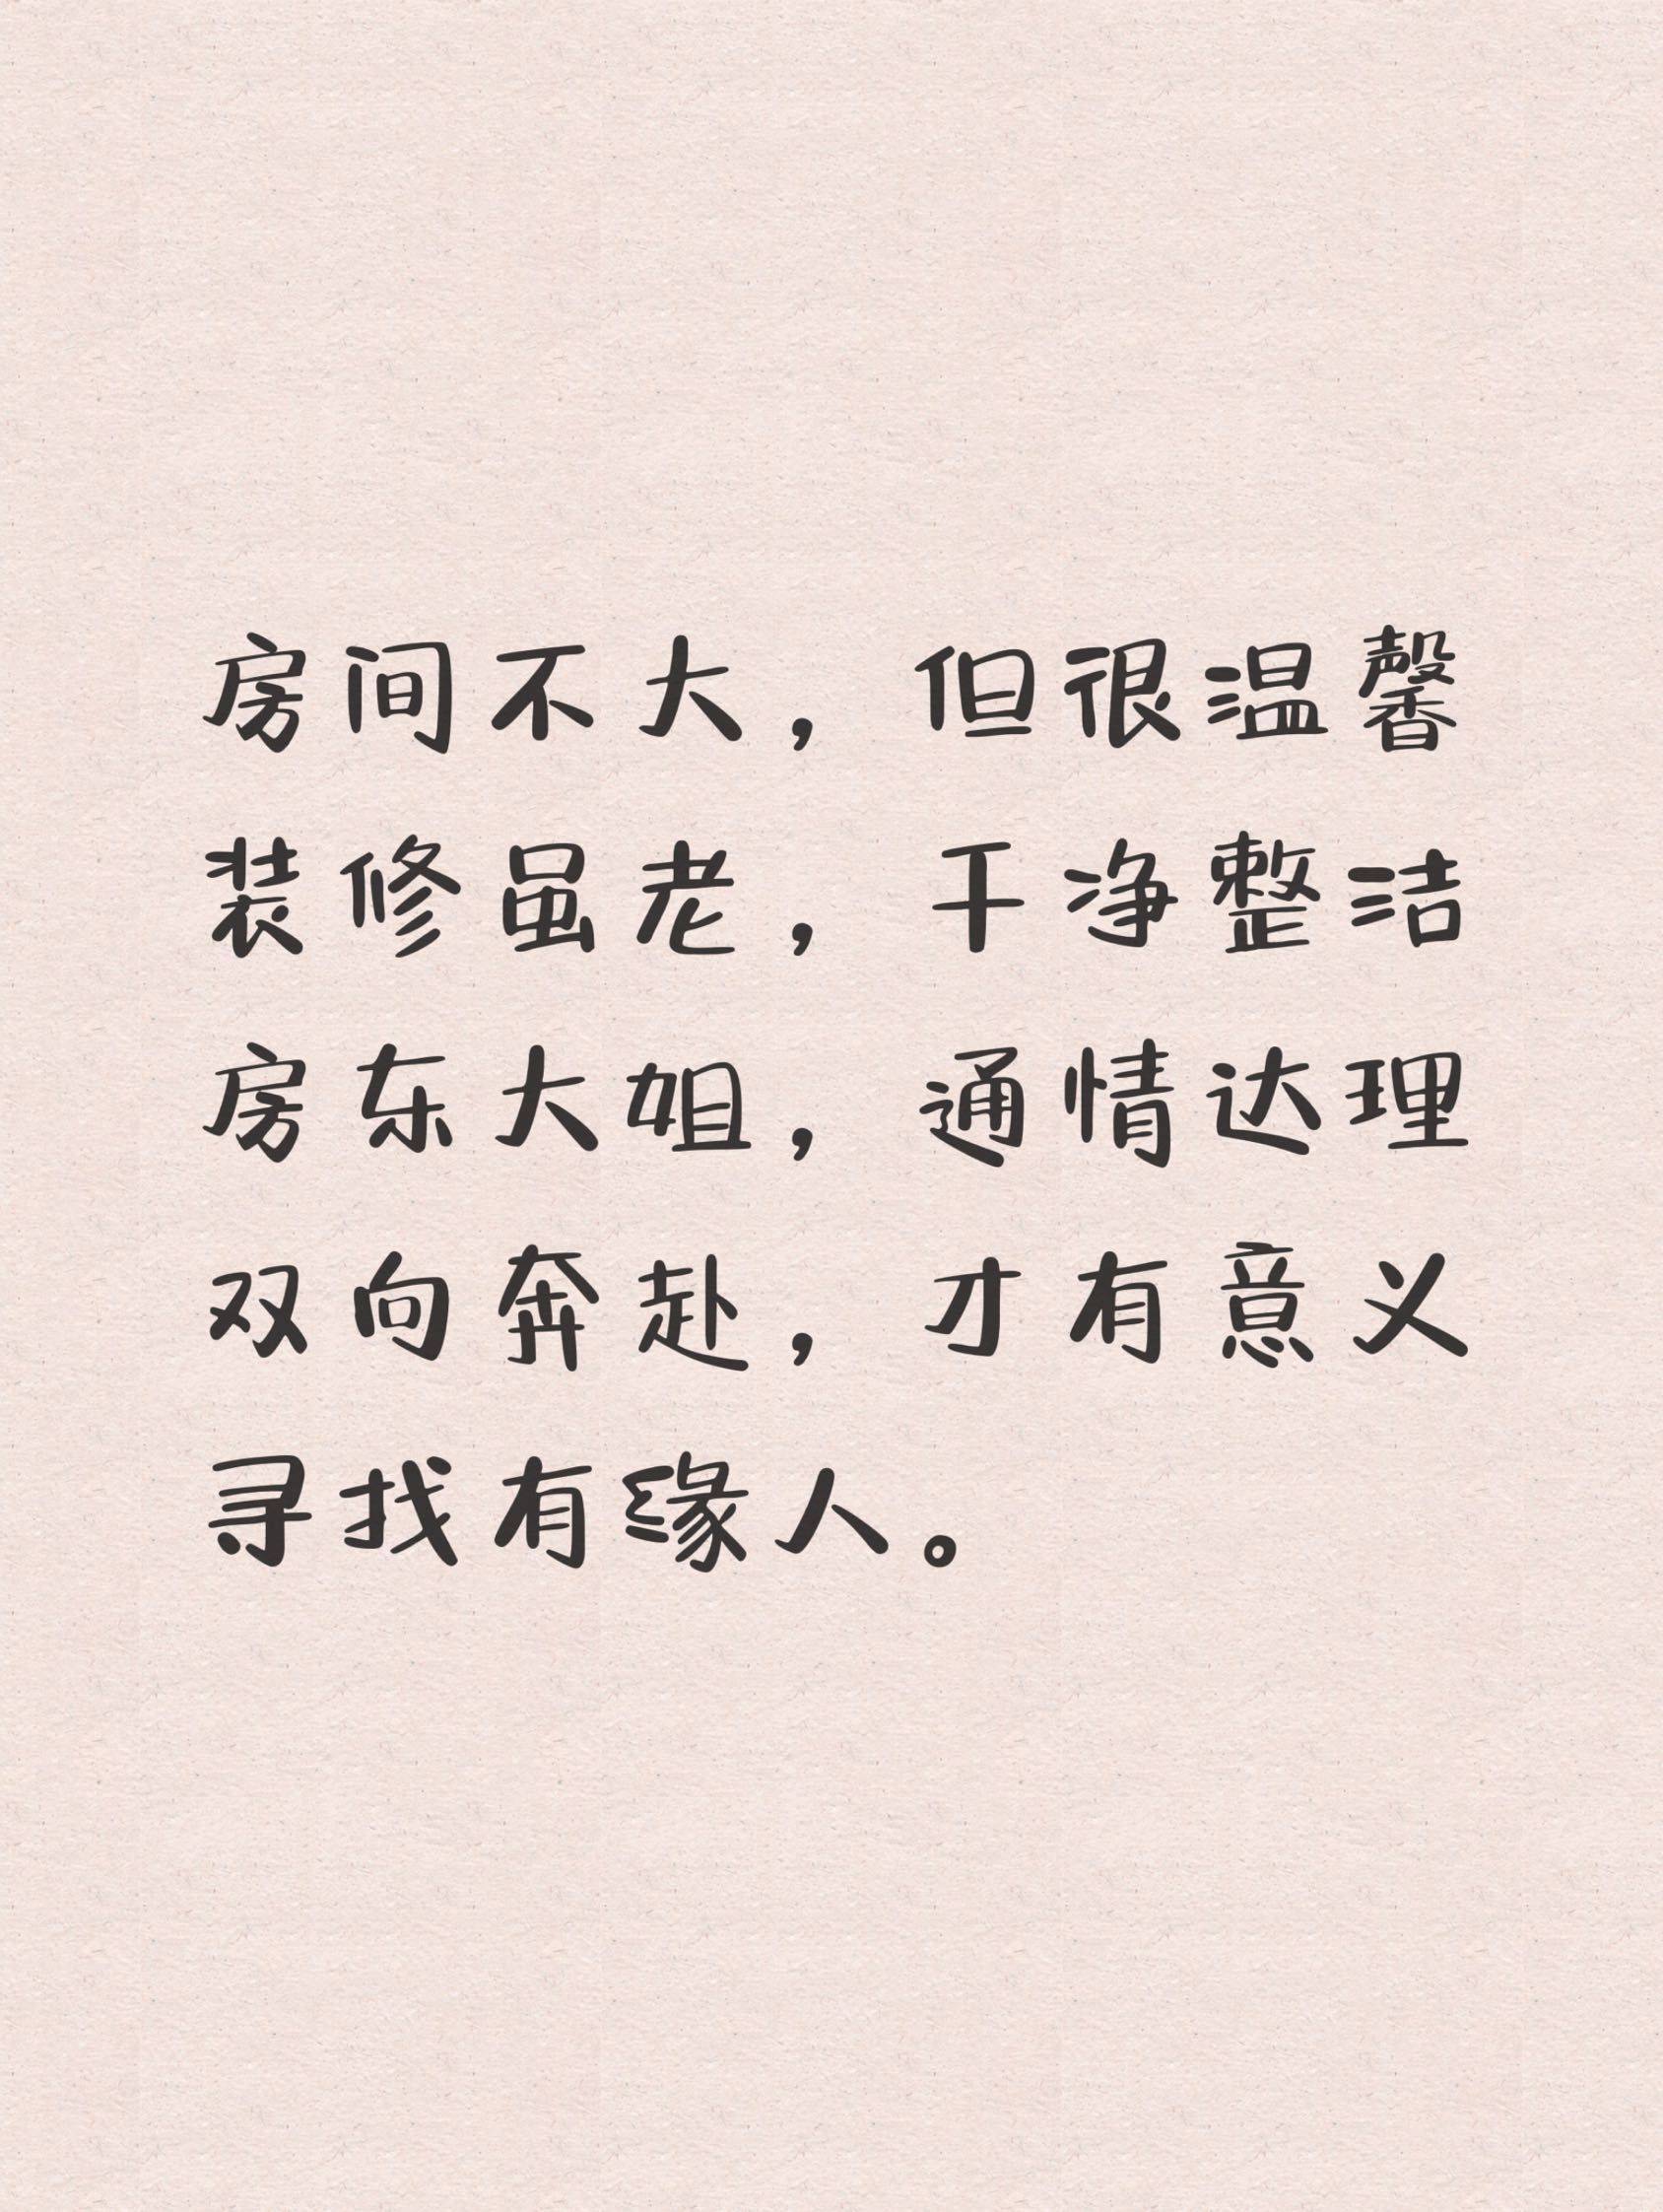 房间不大，但很温馨
装修虽老，干净整洁
房东大姐，通情达理
双向奔赴，才有意义
寻找有缘人。